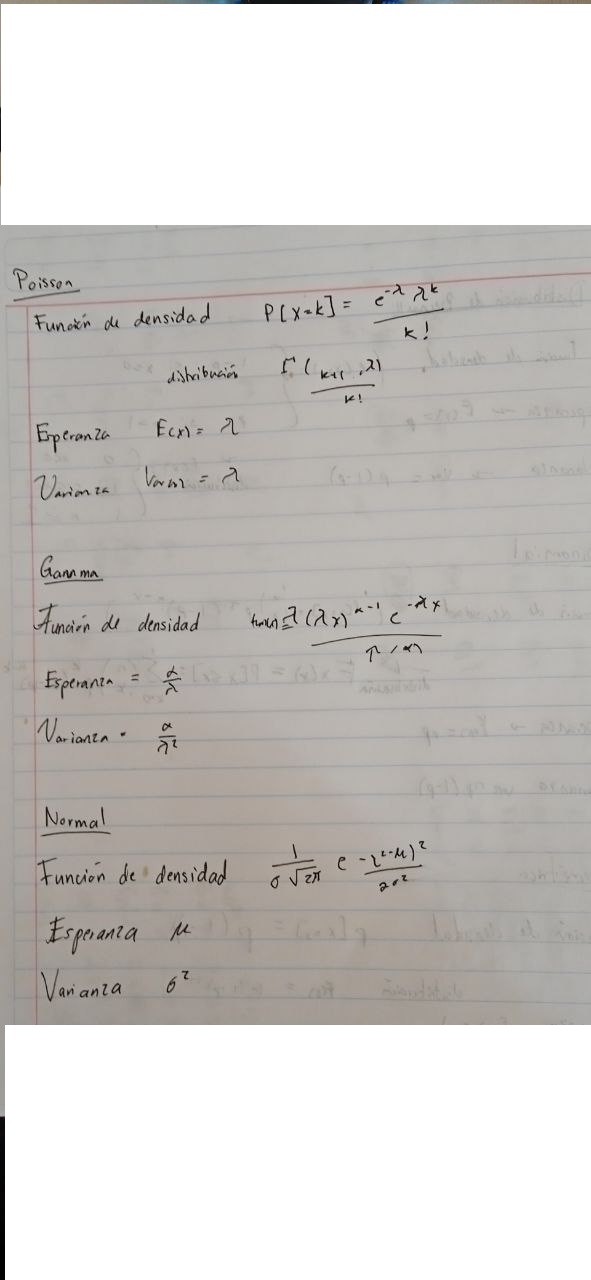 Poisson
Función de densidad P[X=k] = e^-λ λ^k / k!
distribución Γ(k+1, λ) / k!
Esperanza E(x) = λ
Varianza Var(x) = λ
Gamma
Función de densidad λ(λx)^α-1 e^-λx
Esperanza = α/λ
Varianza = α/λ²
Normal
Función de densidad 1/σ√2π e -(x-μ)²/2σ²
Esperanza μ
Varianza σ²